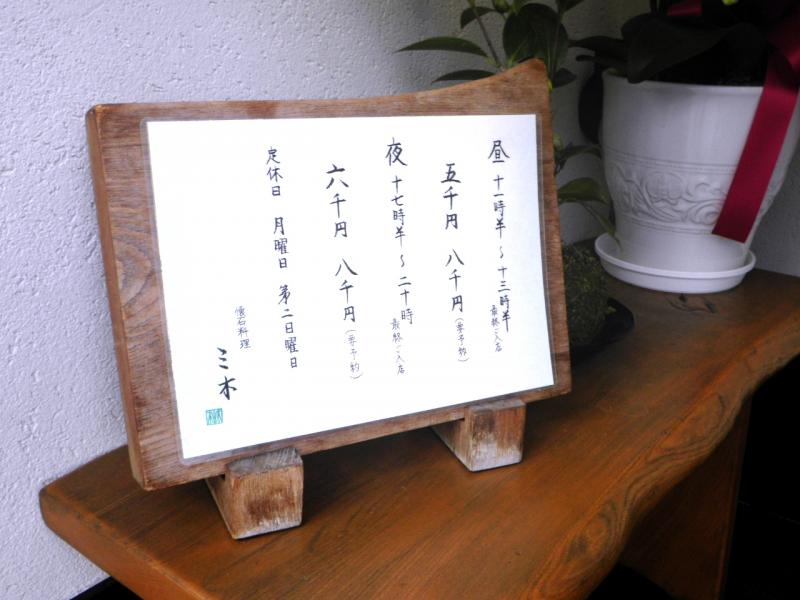 昼 十一時半〜十三時半 最終ご入店
五千円 八千円（要予約）
夜 十七時半〜二十時 最終ご入店
六千円 八千円（要予約）
定休日 月曜日 第二日曜日
懐石料理
三木